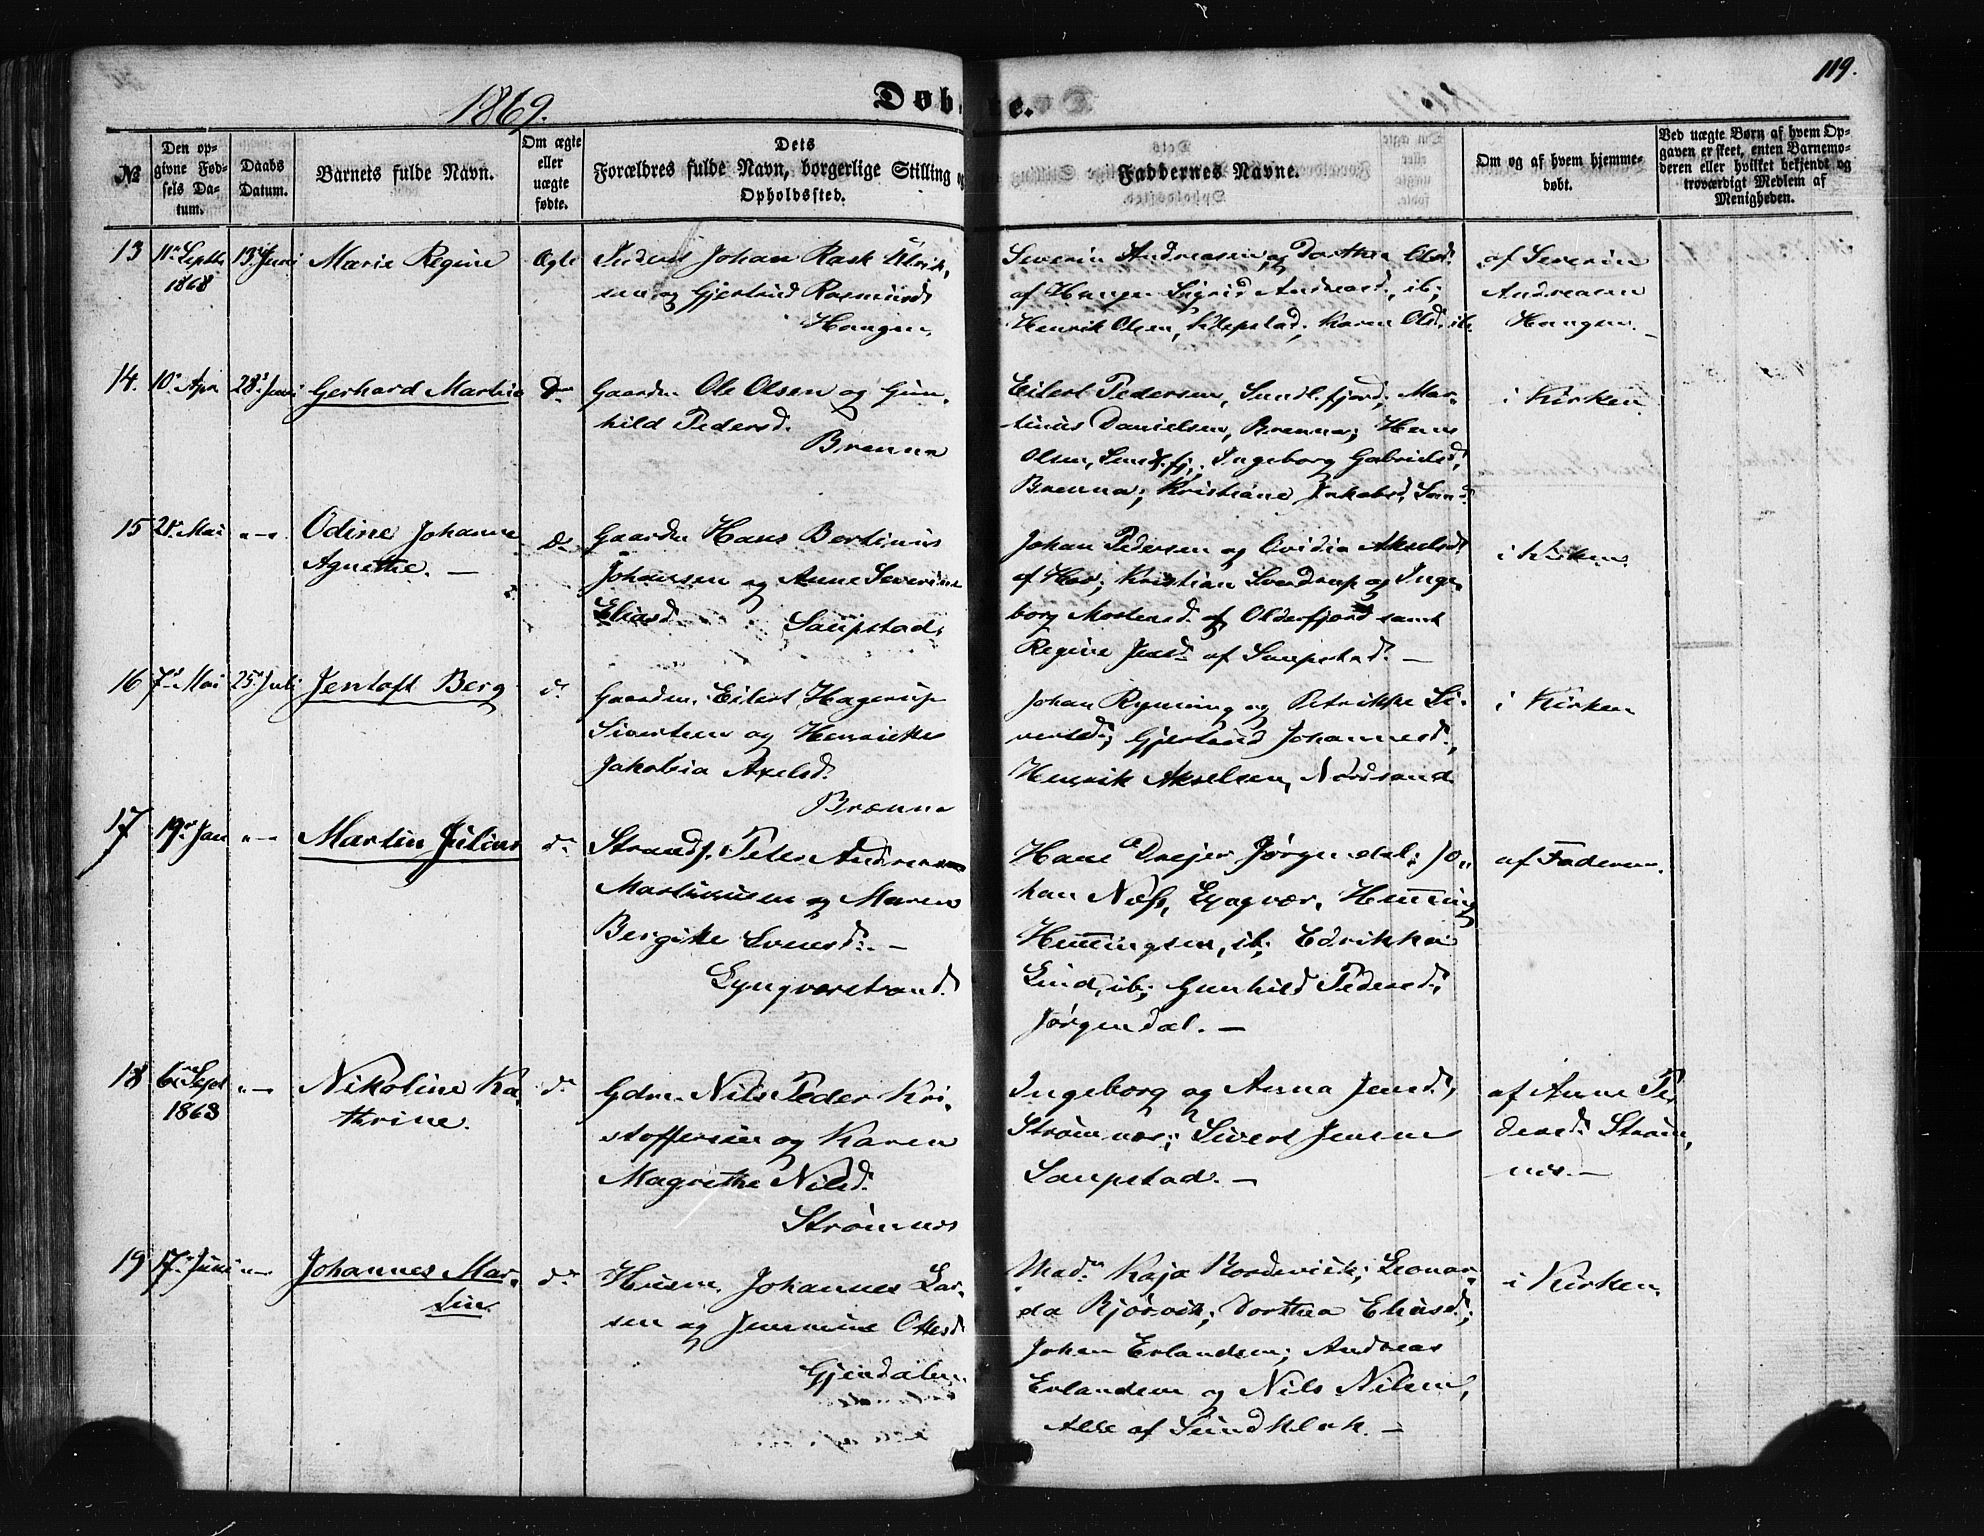 1869.
Døbte.
119.
№
Den opgivne Fødsels Datum.
Daabs Datum.
Barnets fulde Navn.
Om ægte eller uægte fødte.
Dets Forældres fulde Navn, borgerlige Stilling og Opholdssted.
Faddernes Navne.
Om og af hvem hjemmedøbt.
Ved uægte Børn af hvem Opgaven er skeet, enten Barnemoderen eller hvilket bekjendt og troværdigt Medlem af Menigheden.
13 11 Septbr 1868 13 Juni Marie Regine Ægte
Johan Rask Ulrik-
sen og Gjertrud Rasmusd.
Haugen.
Severin Andreasen og Dorthea Olsd.
af Haugen Sigrid Andreasd., ib.;
Henrik Olsen, Klepstad; Karen Olsd. ib.
af Severin
Andreasen
Haugen.
14. 10 Apr 28 Juni Gerhard Martin Do
Gaardm. Ole Olsen og Gun-
hild Pedersd.
Brenna
Eilert Pedersen, Sundl.fjord; Mar-
tinus Danielsen, Brenna; Hans
Olsen, Sundl.fj.; Ingeborg Gabrielsd,
Brenna; Kristiane Jakobsd, Sund
i Kirken
15 21 Mai "—" Odine Johanne
Agnethe. — Do
Gaardm Hans Bertinus
Johansen og Anne Severine
Eliasd. Saupstad.
Johan Pedersen og Ovidia Akselsd
af Hov; Kristian Sverdrup og Inge-
borg Mortensd. af Olderfjord samt
Regine Jensd. af Saupstad. —
i Kirken
16 7 Mai 25 Juli Jentoft Berg d.
Gaardm. Eilert Hagerup
Sivertsen og Henrikke
Jakobia Axelsd.
Brænna
Johan Rynning og Petrikke Si-
vertsd; Gjertrud Johannesd.,
Henrik Akselsen, Nordsand
i Kirken
17 19 Jan "—" Martin Julius do
Strands. Peter Andreas
Martinusen og Maren
Bergitte Svensd. —
Lyngværstrand.
Hans Drejer Jørgendal; Jo-
han Næss, Lyngvær, Hemming
Hemmingsen, ib; Edrikka
Lind, ib; Gunhild Pedersd.,
Jørgendal. —
af Faderen.
18 6 Sept 1868 "—" Nikoline Ka-
thrine. do
Gdm. Nils Peder Kri-
stoffersen og Karen
Magrethe Nilsd.
Strømnes
Ingeborg og Anna Jensd.,
Strømnes; Sivert Jensen
Saupstad. —
af Anne Pe-
dersd. Strøm-
nes. —
19 17 Juni "—" Johannes Mar-
tin do
Husm. Johannes Lar-
sen og Jensmine Ottesd
Gjerdalen
Mad. Kaja Bordevick; Leonar-
da Bjørvik; Dorthea Eliasd.;
Johan Erlandsen; Andreas
Erlandsen og Nils Nilsen,
Alle af Sundklak. —
i Kirken.